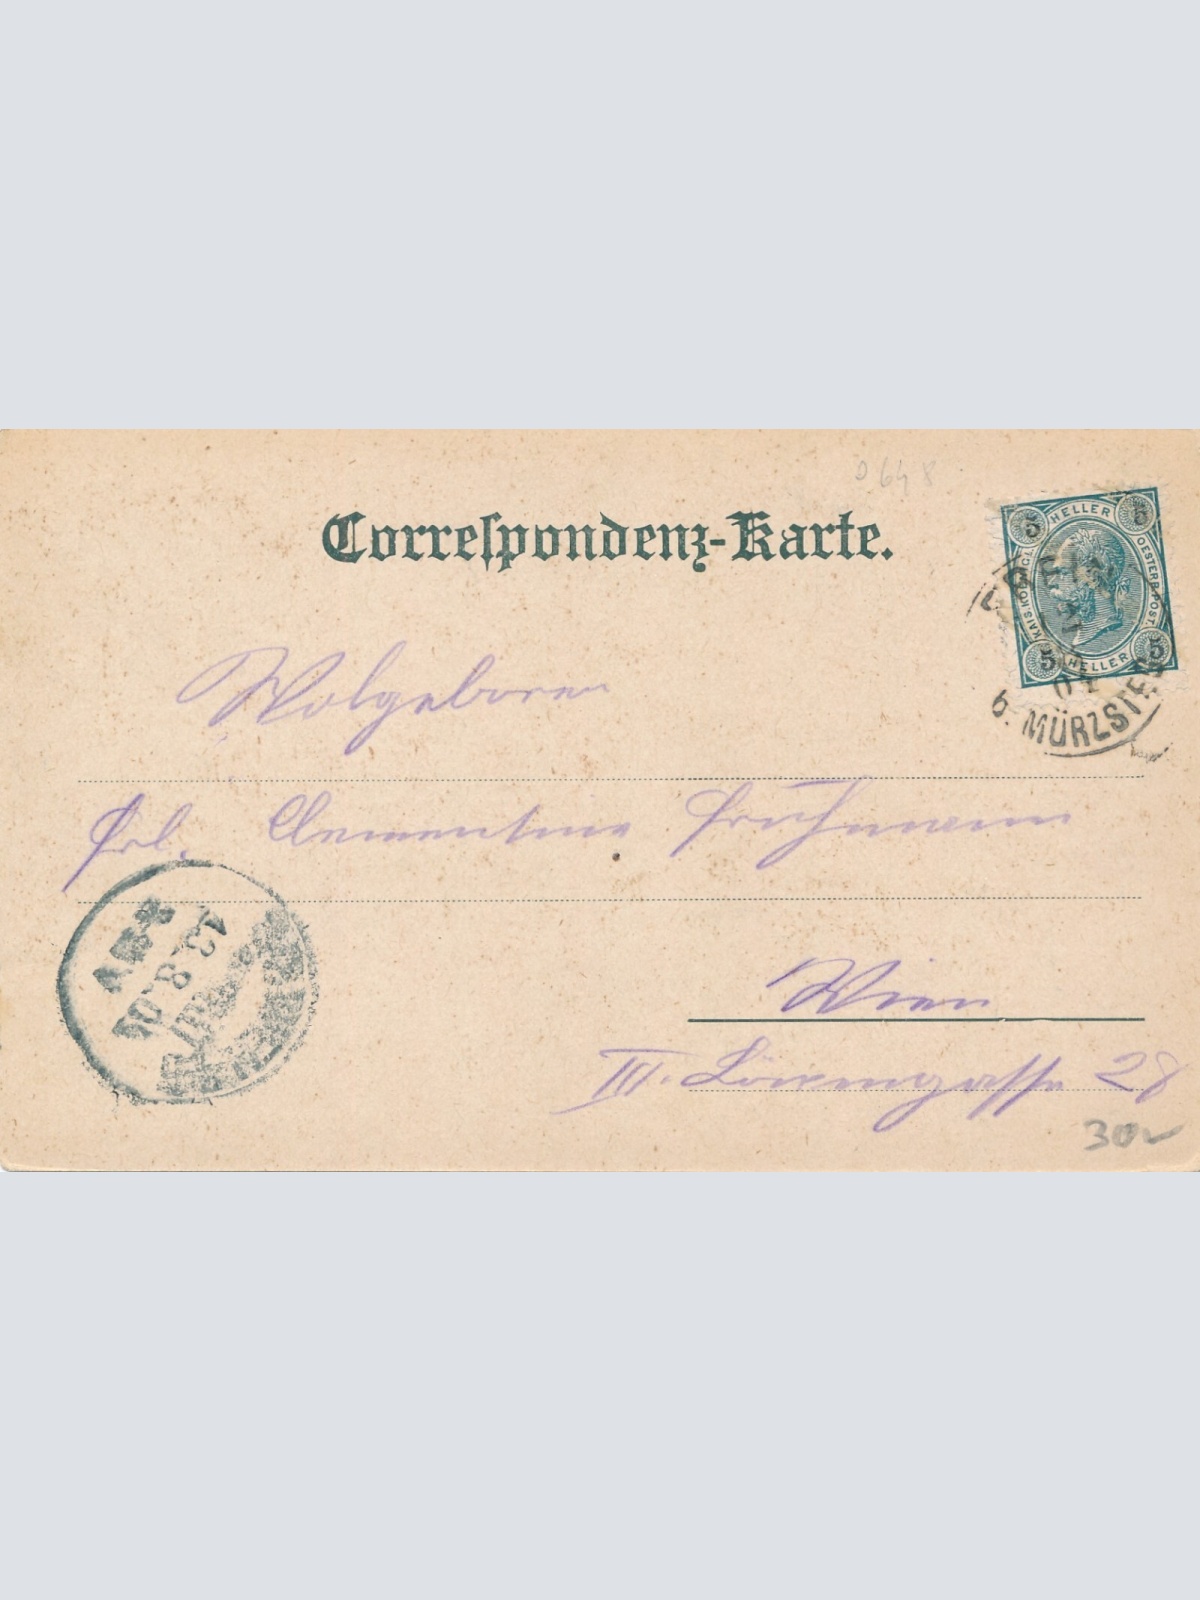 0648
Correspondenz-Karte.
5 HELLER 5
KAIS. KÖNIGL. OESTERR. POST
5 HELLER 5
FREIN
04
b. MÜRZSTEG
Wolgeboren
Frl. Clementine Fruhmann
13.8.04
Wien
III. Löwengasse 28
30